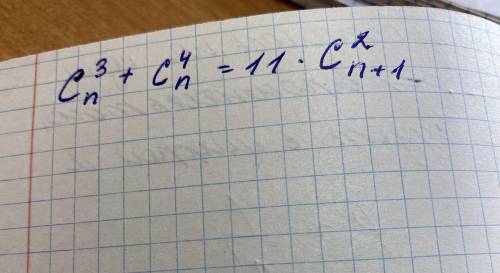 C_n^3 + C_n^4 = 11 · C_{n+1}^2